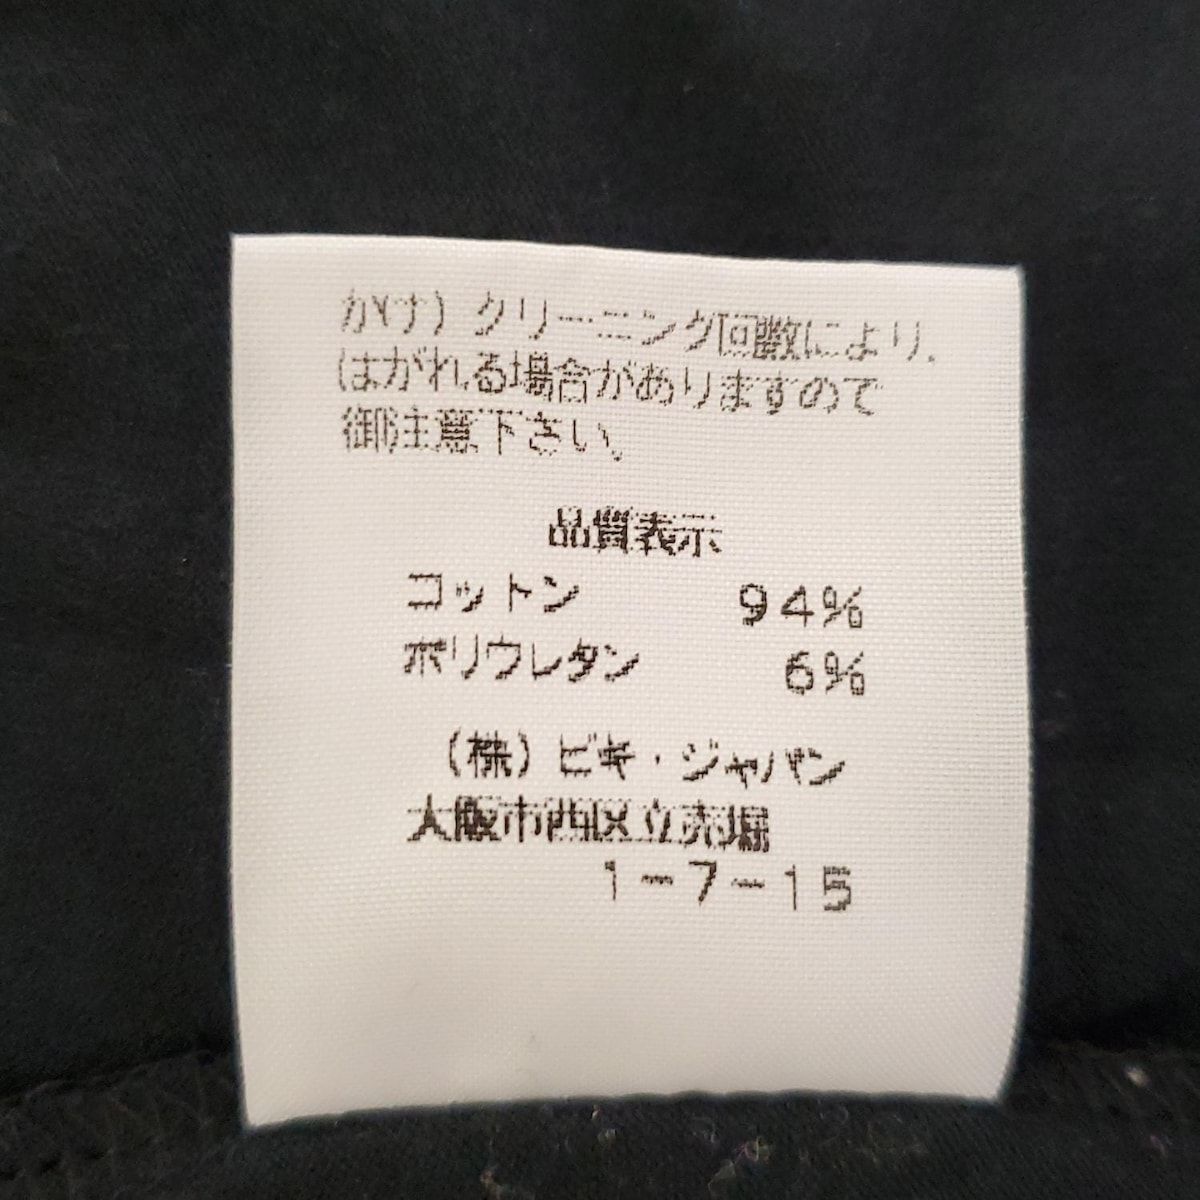 が(す) クリーニング回数により、
はがれる場合がありますので
御注意下さい。
品質表示
コットン 94%
ポリウレタン 6%
(株)ビキ・ジャパン
大阪市西区立売堀
1-7-15